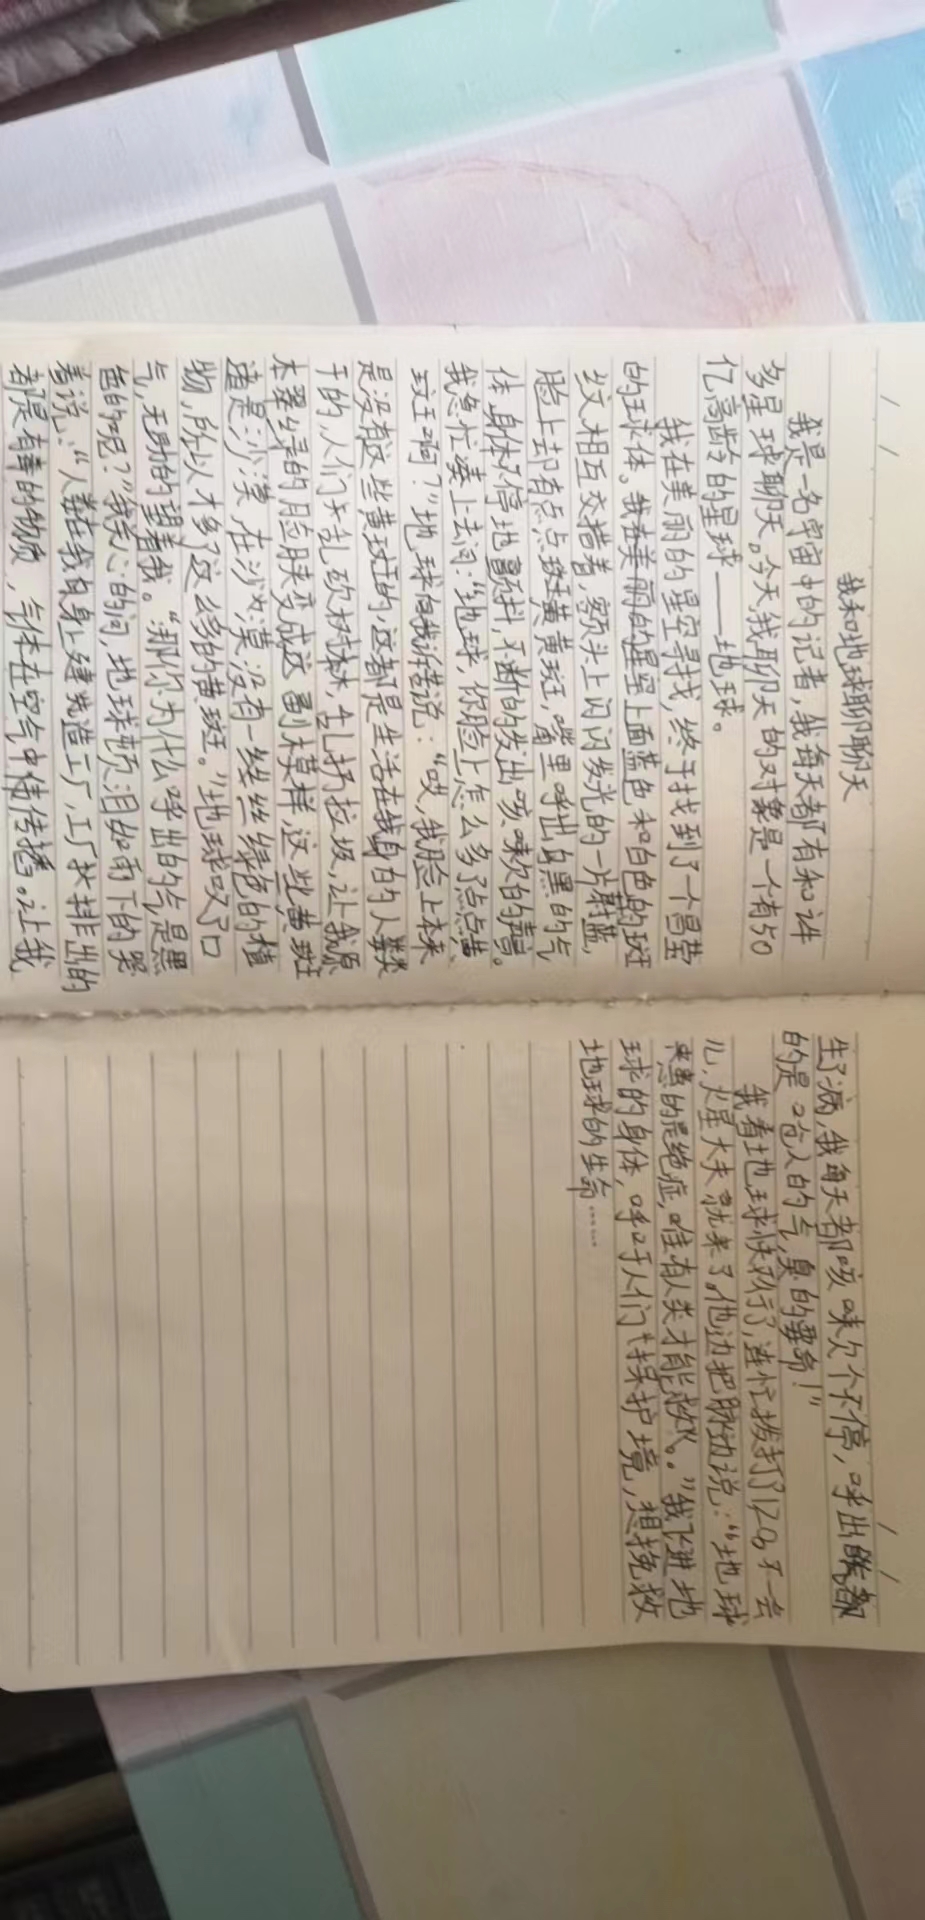 我和地球聊聊天
我是一名宇宙中的记者，我每天都有和许
多星球聊天。今天，我聊天的对象是一个有50
亿高龄的星球——地球。
我在美丽的星空寻找，终于找到了一个晶莹
的球体。我在美丽的星空上面蓝色和白色的斑
纹相互交错着，额头上闪闪发光的一片蔚蓝，
脸上去却有点点斑黄黄斑，嘴里呼出乌黑的气
体，身体不停地颤抖，不断的发出咳嗽的声音。
我急忙凑上去问：“地球，你脸上怎么多了点点黄
斑啊？”地球向我诉苦说：“哎，我脸上本来
是没有这些黄斑的，这都是生活在我身的人类
干的，人们大乱砍树林，乱扔垃圾，让我原
本翠绿的脸肤变成这副模样，这些黄斑
渣是沙漠，在沙漠没有一丝丝绿色的植
物，所以才多了这么多的黄斑。”地球叹了口
气，无助的望着我。“那你为什么呼出的气是黑
色的呢？”我关心的问，地球顿泪如雨下的哭
着说：“人类在我身上建筑造工厂，工厂排出的
都是有毒的物质，气体在空气中传播。让我
生了病，我每天都咳嗽个不停，呼出的气都
的是呛人的气，臭的要命！”
我看地球快不行了，连忙拨打了120，不一会
儿，火星大夫就来了。他边把脉边说：“地球
患的是绝症，唯有人类才能救。”我飞进地
球的身体，呼吁人们保护境，想挽救
地球的生命……